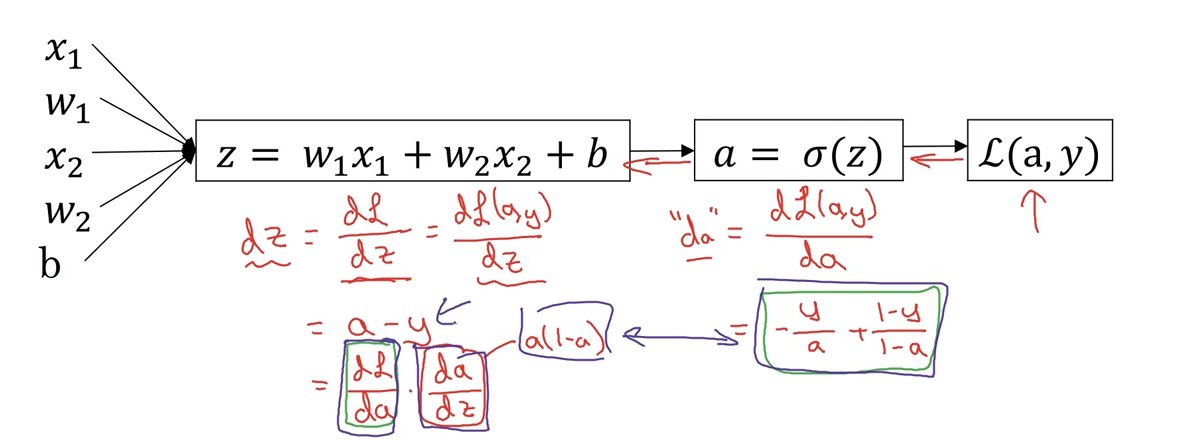 x₁
w₁
x₂
w₂
b
z = w₁x₁ + w₂x₂ + b
a = σ(z)
ℒ(a, y)
dz = dℒ/dz = dℒ(a,y)/dz
= a - y
= dℒ/da · da/dz
a(1-a)
"da" = dℒ(a,y)/da
= - y/a + (1-y)/(1-a)